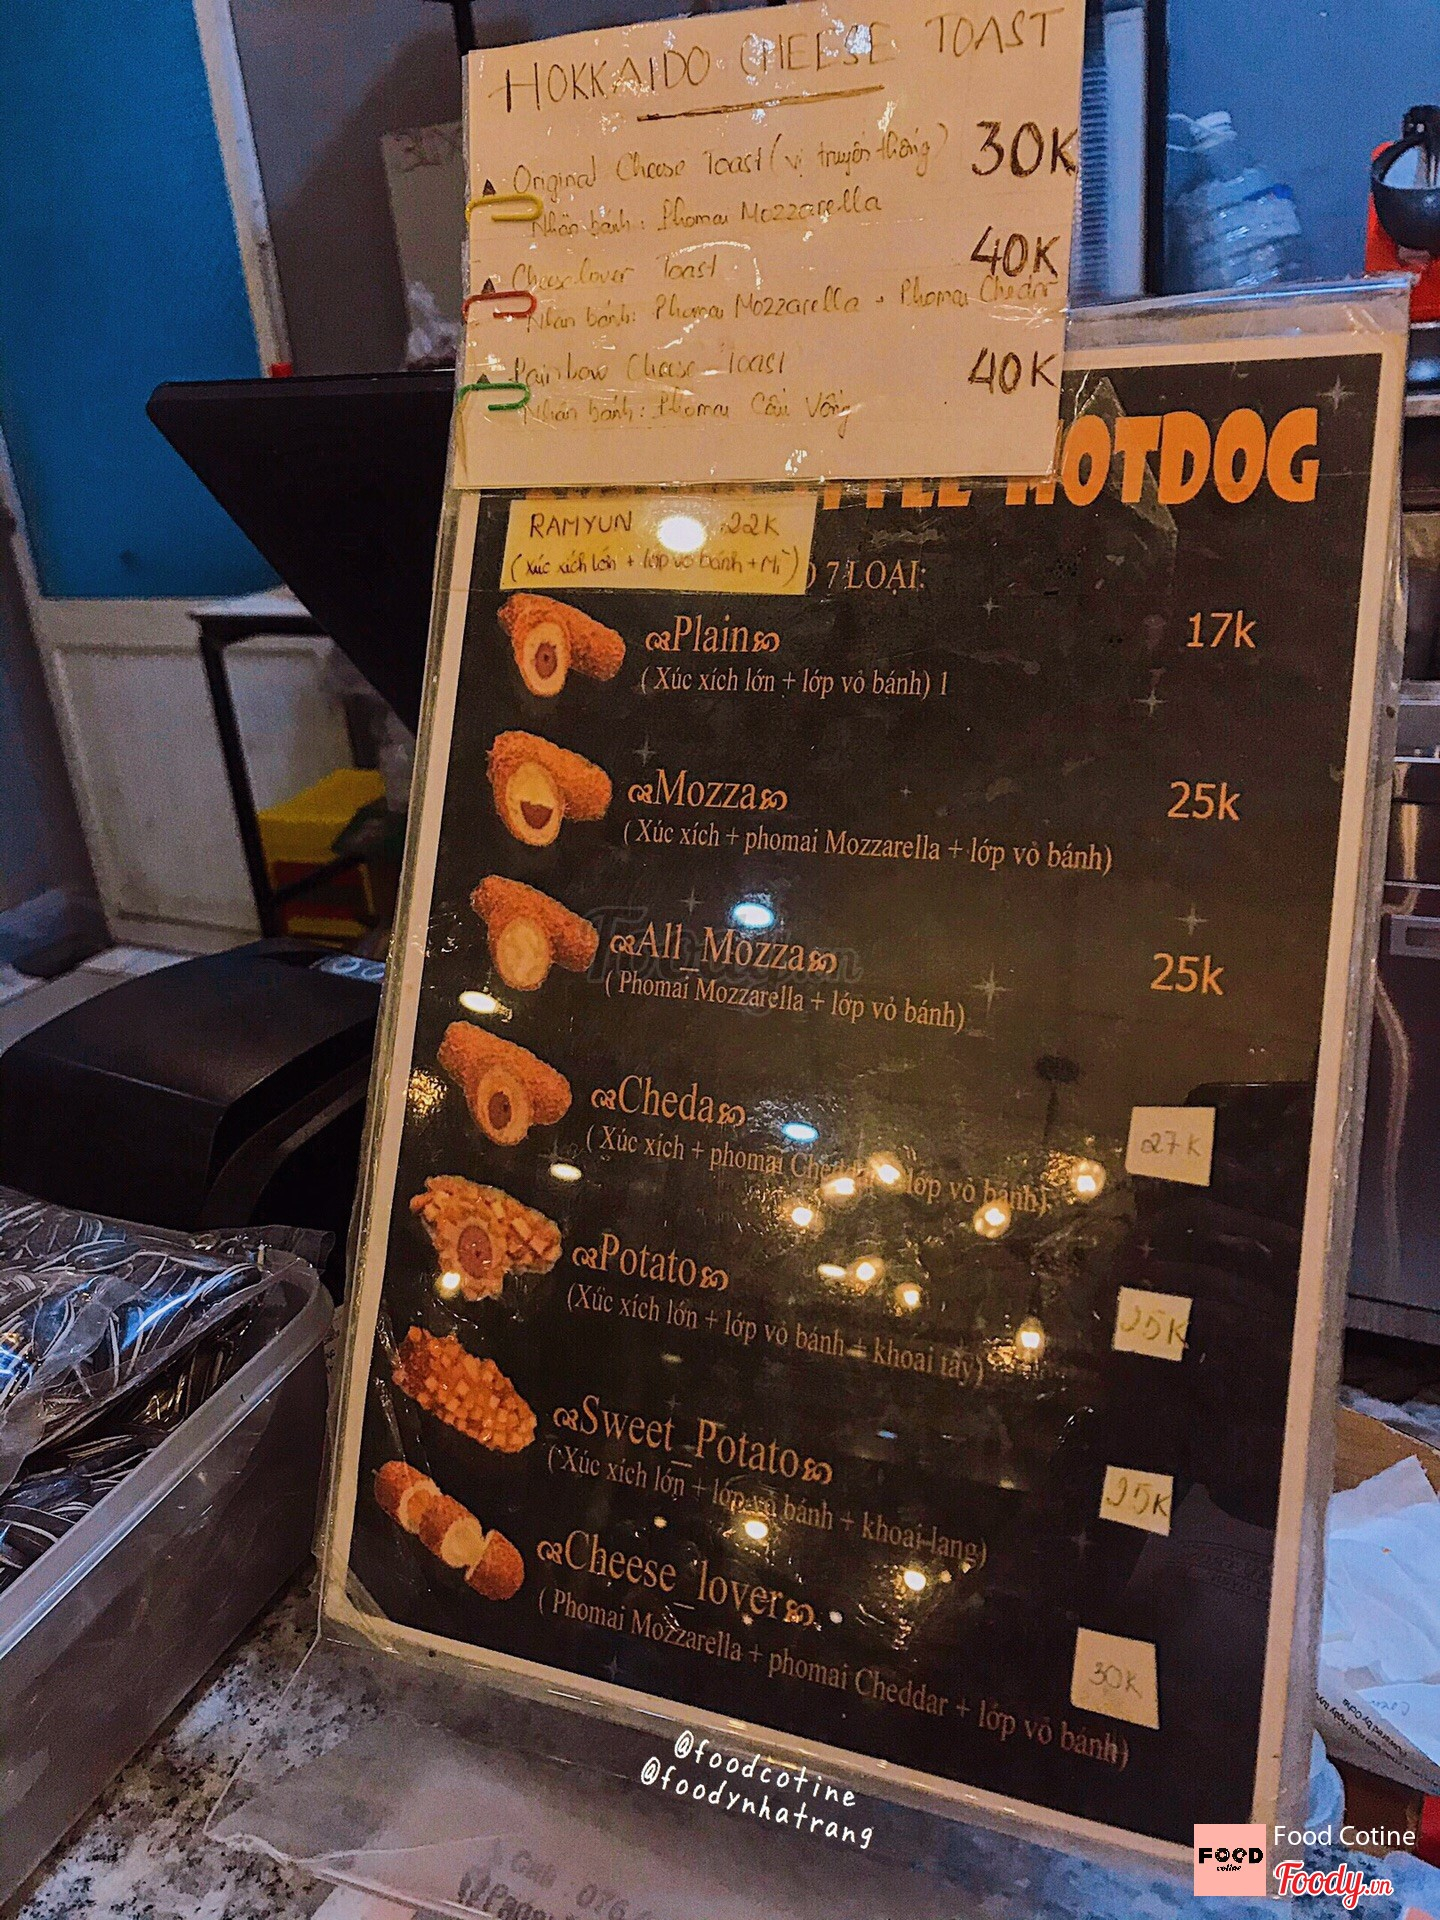 HOKKAIDO CHEESE TOAST
Original Cheese Toast (vị truyền thống) 30K
Nhân bánh: Phomai Mozzarella
Cheeselover Toast 40K
Nhân bánh: Phomai Mozzarella + Phomai Chedar
Rainbow Cheese Toast 40K
Nhân bánh: Phomai Cầu Vồng
HOTDOG
RAMYUN 22K
(xúc xích lớn + lớp vỏ bánh + Mì)
7 LOẠI:
Plain 17k
( Xúc xích lớn + lớp vỏ bánh) 1
Mozza 25k
( Xúc xích + phomai Mozzarella + lớp vỏ bánh)
All_Mozza 25k
( Phomai Mozzarella + lớp vỏ bánh)
Cheda 27K
( Xúc xích + phomai Cheddar + lớp vỏ bánh)
Potato 25K
(Xúc xích lớn + lớp vỏ bánh + khoai tây)
Sweet_Potato 25K
( Xúc xích lớn + lớp vỏ bánh + khoai lang)
Cheese_lover 30K
( Phomai Mozzarella + phomai Cheddar + lớp vỏ bánh)
@foodcotine
@foodynhatrang
FOOD
cotine
Food Cotine
Foody.vn